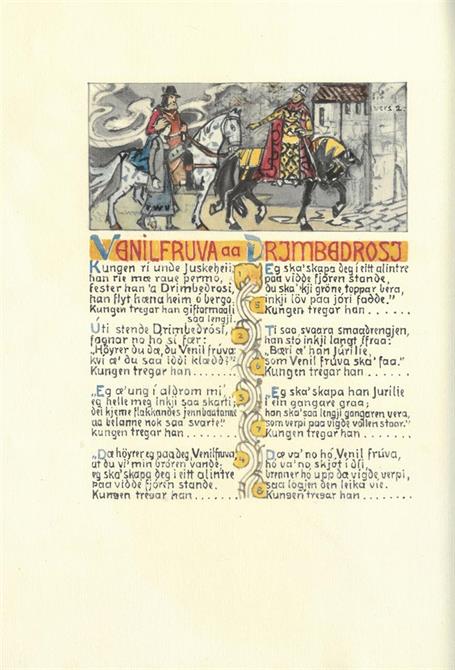 vers 2.
VENILFRUVA aa DRIMBEDROSI
1
Kungen ri unde Juskeheii,
han rie mæ raue permo,
fester han 'a Drimbedrosi,
han flyt hæna heim o bergo.
Kungen tregar han giftarmaali
saa lengji.
2
Uti stende Drimbedrosi,
fagnar no ho si fær:
„Høyrer du dæ, du Venil fruva:
kvi æ' du saa iddi klædd?"
Kungen tregar han ......
3
„Eg æ' ung i aldrom mi',
eg helle meg inkji saa skarti;
dei kjeme flakkandes jennbautanne
aa belanne nok saa svarte!"
Kungen tregar han ......
4
„Dæ høyrer eg paa deg, Venilfruva,
at du vi' min brören vande;
eg ska' skapa deg i eitt alintre
paa vidde fjören stande.
Kungen tregar han ......
5
Eg ska' skapa deg i eitt alintre
paa vidde fjören stande,
du ska' 'kji gröne toppar bera,
inkji löv paa jöri fadde."
Kungen tregar han ......
6
Ti saa svaara smaadrengjen,
han sto inkji langt ifraa:
„Bæri æ' han Jurilie,
som Venil fruva ska' faa."
Kungen tregar han ......
7
„Eg ska'skapa han Jurilie
i ein gangare graa;
han ska' saa lengji gangaren vera,
som verpi paa vigde vollen staar."
Kungen tregar han ......
8
Dæ va' no ho Venil fruva,
ho va' no skjøt i ísi,
brenner ho upp da vigde verpi,
saa logjen den leika vie.
Kungen tregar han ......